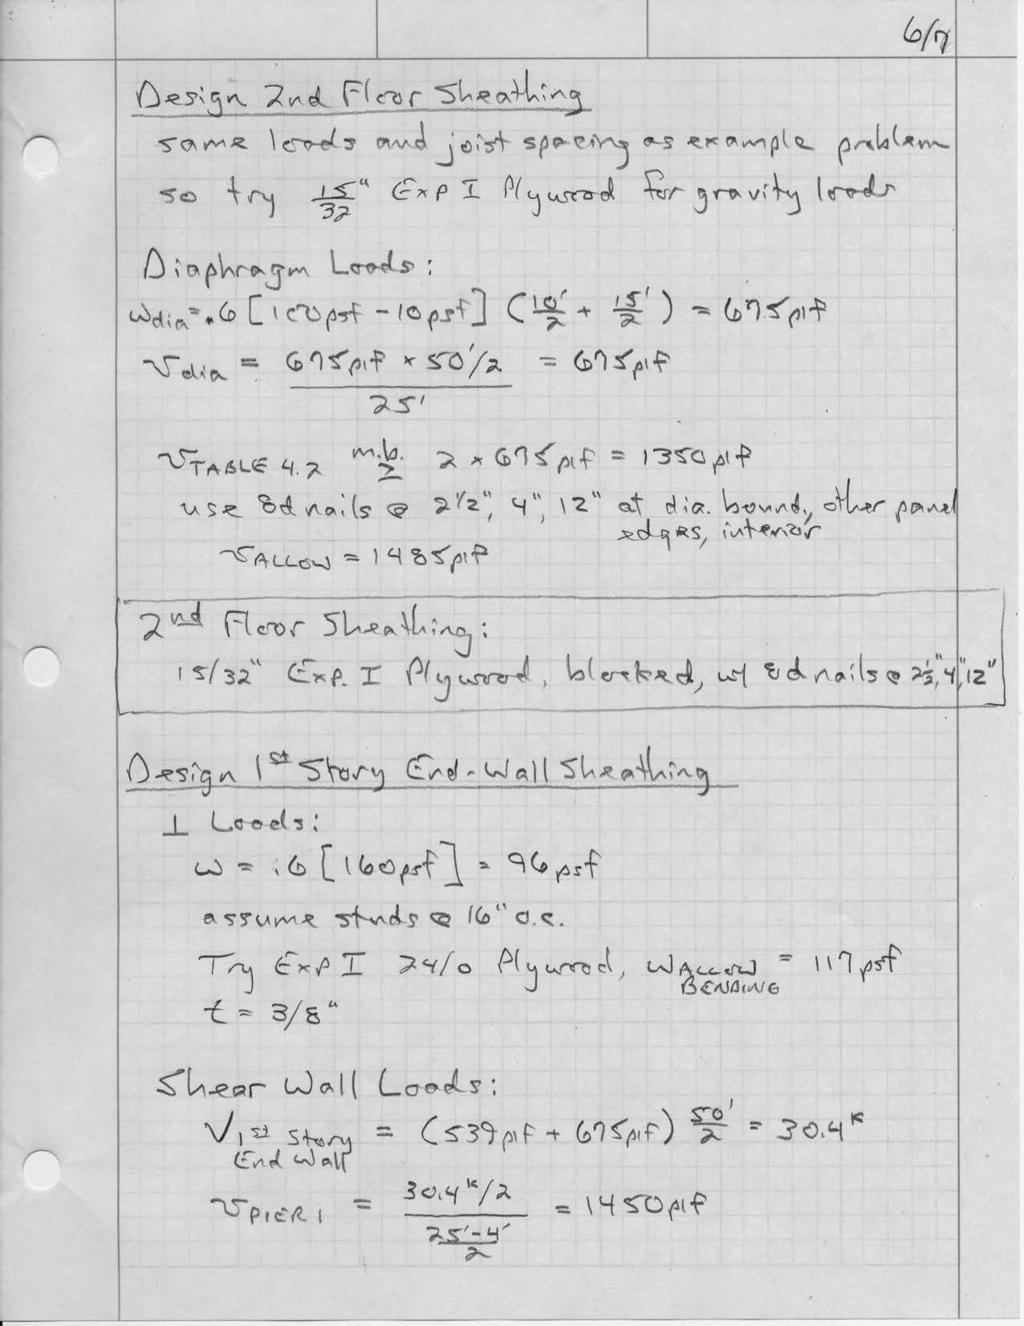 6/7
Design 2nd Floor Sheathing
same loads and joist spacing as example problem
so try 15/32" Exp I Plywood for gravity loads
Diaphragm Loads:
wdia = .6 [100psf - 10psf] (10'/2 + 15'/2) = 675plf
vdia = 675plf x 50'/2 / 25' = 675plf
vTABLE 4.2 m.b. ≥ 2 x 675plf = 1350plf
use 8d nails @ 2 1/2", 4", 12" at dia. bound., other panel
edges, interior
vALLOW = 1485plf
2nd Floor Sheathing:
15/32" Exp. I Plywood, blocked, w/ 8d nails @ 2 1/2", 4", 12"
Design 1st Story End-Wall Sheathing
⊥ Loads:
w = .6 [160psf] = 96psf
assume studs @ 16" o.c.
Try Exp I 24/0 Plywood, wALLOW BENDING = 117psf
t = 3/8"
Shear Wall Loads:
V1st Story End Wall = (539plf + 675plf) 50'/2 = 30.4k
vPIER 1 = 30.4k/2 / (25'-4'/2) = 1450plf